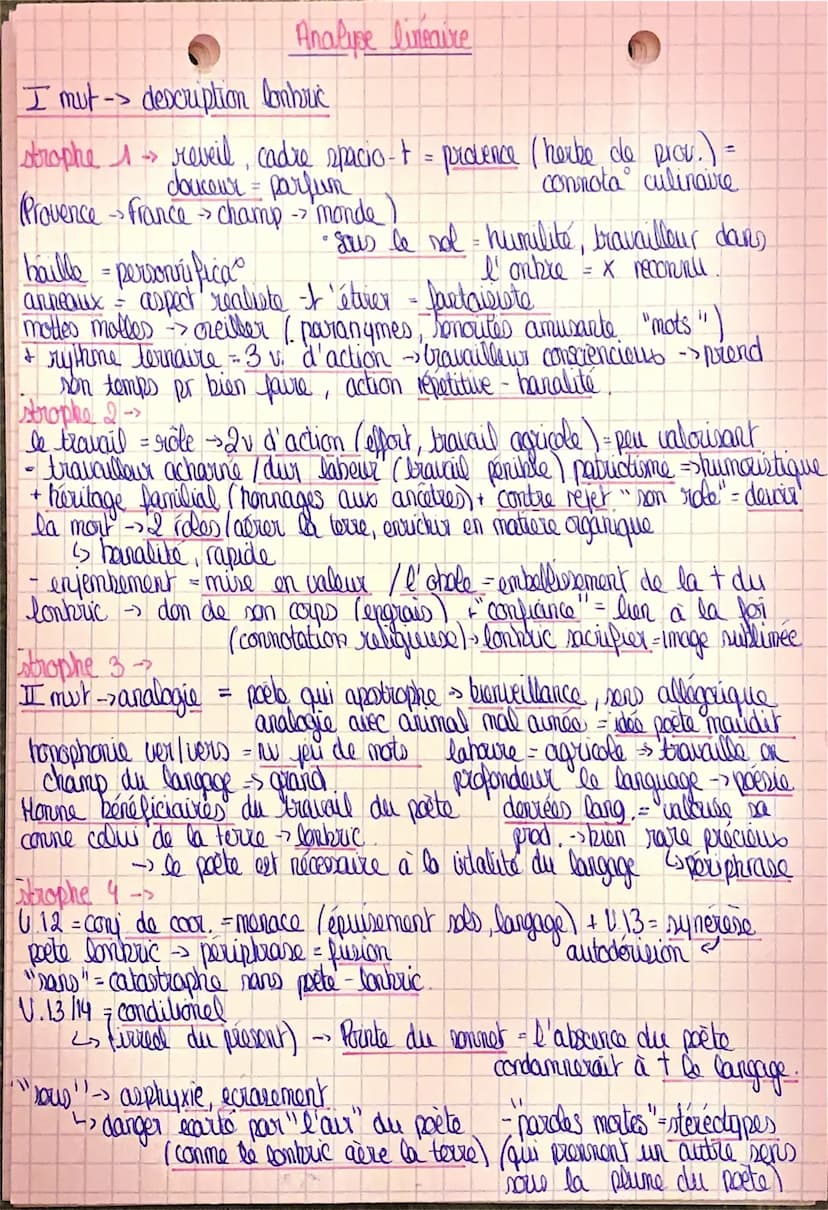 Analyse linéaire
I mvt -> description lombric
strophe 1 -> reveil, cadre spacio-t = provence (herbe de prov.) =
douceur = parfum connota° culinaire
(Provence -> France -> champ -> monde)
• sous le sol = humilité, travailleur dans
l'ombre = x reconnu.
baille = personnifica°
anneaux = aspect réaliste + l'étirer = fantaisiste
mottes molles -> oreiller (paronymes, sonorités amusante "mots")
+ rythme ternaire = 3 v. d'action -> travailleur consciencieux -> prend
son temps pr bien faire, action répétitive - banalité.
strophe 2 ->
le travail = rôle -> 2v d'action (effort, travail agricole) = peu valorisant
- travailleur acharné / dur labeur (travail pénible) patriotisme => humoristique
+ héritage familial (hommages aux ancêtres) + contre rejet "son role" = devoir
la mort -> 2 idées (aérer la terre, enrichir en matiere organique
↳ banalité, rapide
- enjembement = mise en valeur / l'obole = embellissement de la † du
lombric -> don de son corps (engrais) + "confiance" = lien à la foi
(connotation religieuse) -> lombric sacrifier = image sublimée
strophe 3 ->
II mvt -> analogie = poète qui apostrophe -> bienveillance, sens allégorique
analogie avec animal mal aimée = idée poète maudit
homophonie ver/vers = nv jeu de mots laboure = agricole -> travaille en
champ du langage -> grand profondeur le language -> poésie
Homme bénéficiaires du travail du poète denrées lang. = valorise sa
comme celui de la terre -> lombric. prod. -> bien rare précieux
-> le poète est nécessaire à la vitalité du langage ↳ périphrase
strophe 4 ->
V.12 = conj de coor. = menace (épuisement sols, langage) + V.13 = synérèse
poète lombric -> périphrase = fusion autodérision
"sans" = catastrophe sans poète - lombric.
V.13/14 = conditionel
↳ (irréel du présent) -> Pointe du sonnet = l'absence du poète
condamnerait à † le langage.
"sous" -> asphyxie, ecrasement
↳ danger écarté par "l'air" du poète - "paroles mortes" = stéréotypes
(comme le lombric aère la terre) (qui prennent un autre sens
sous la plume du poète)